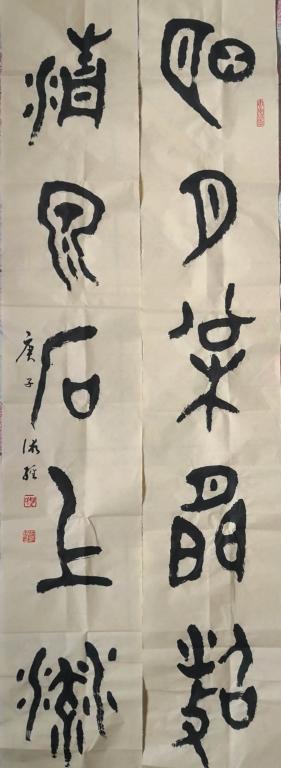 明月松間照
清泉石上流
庚子